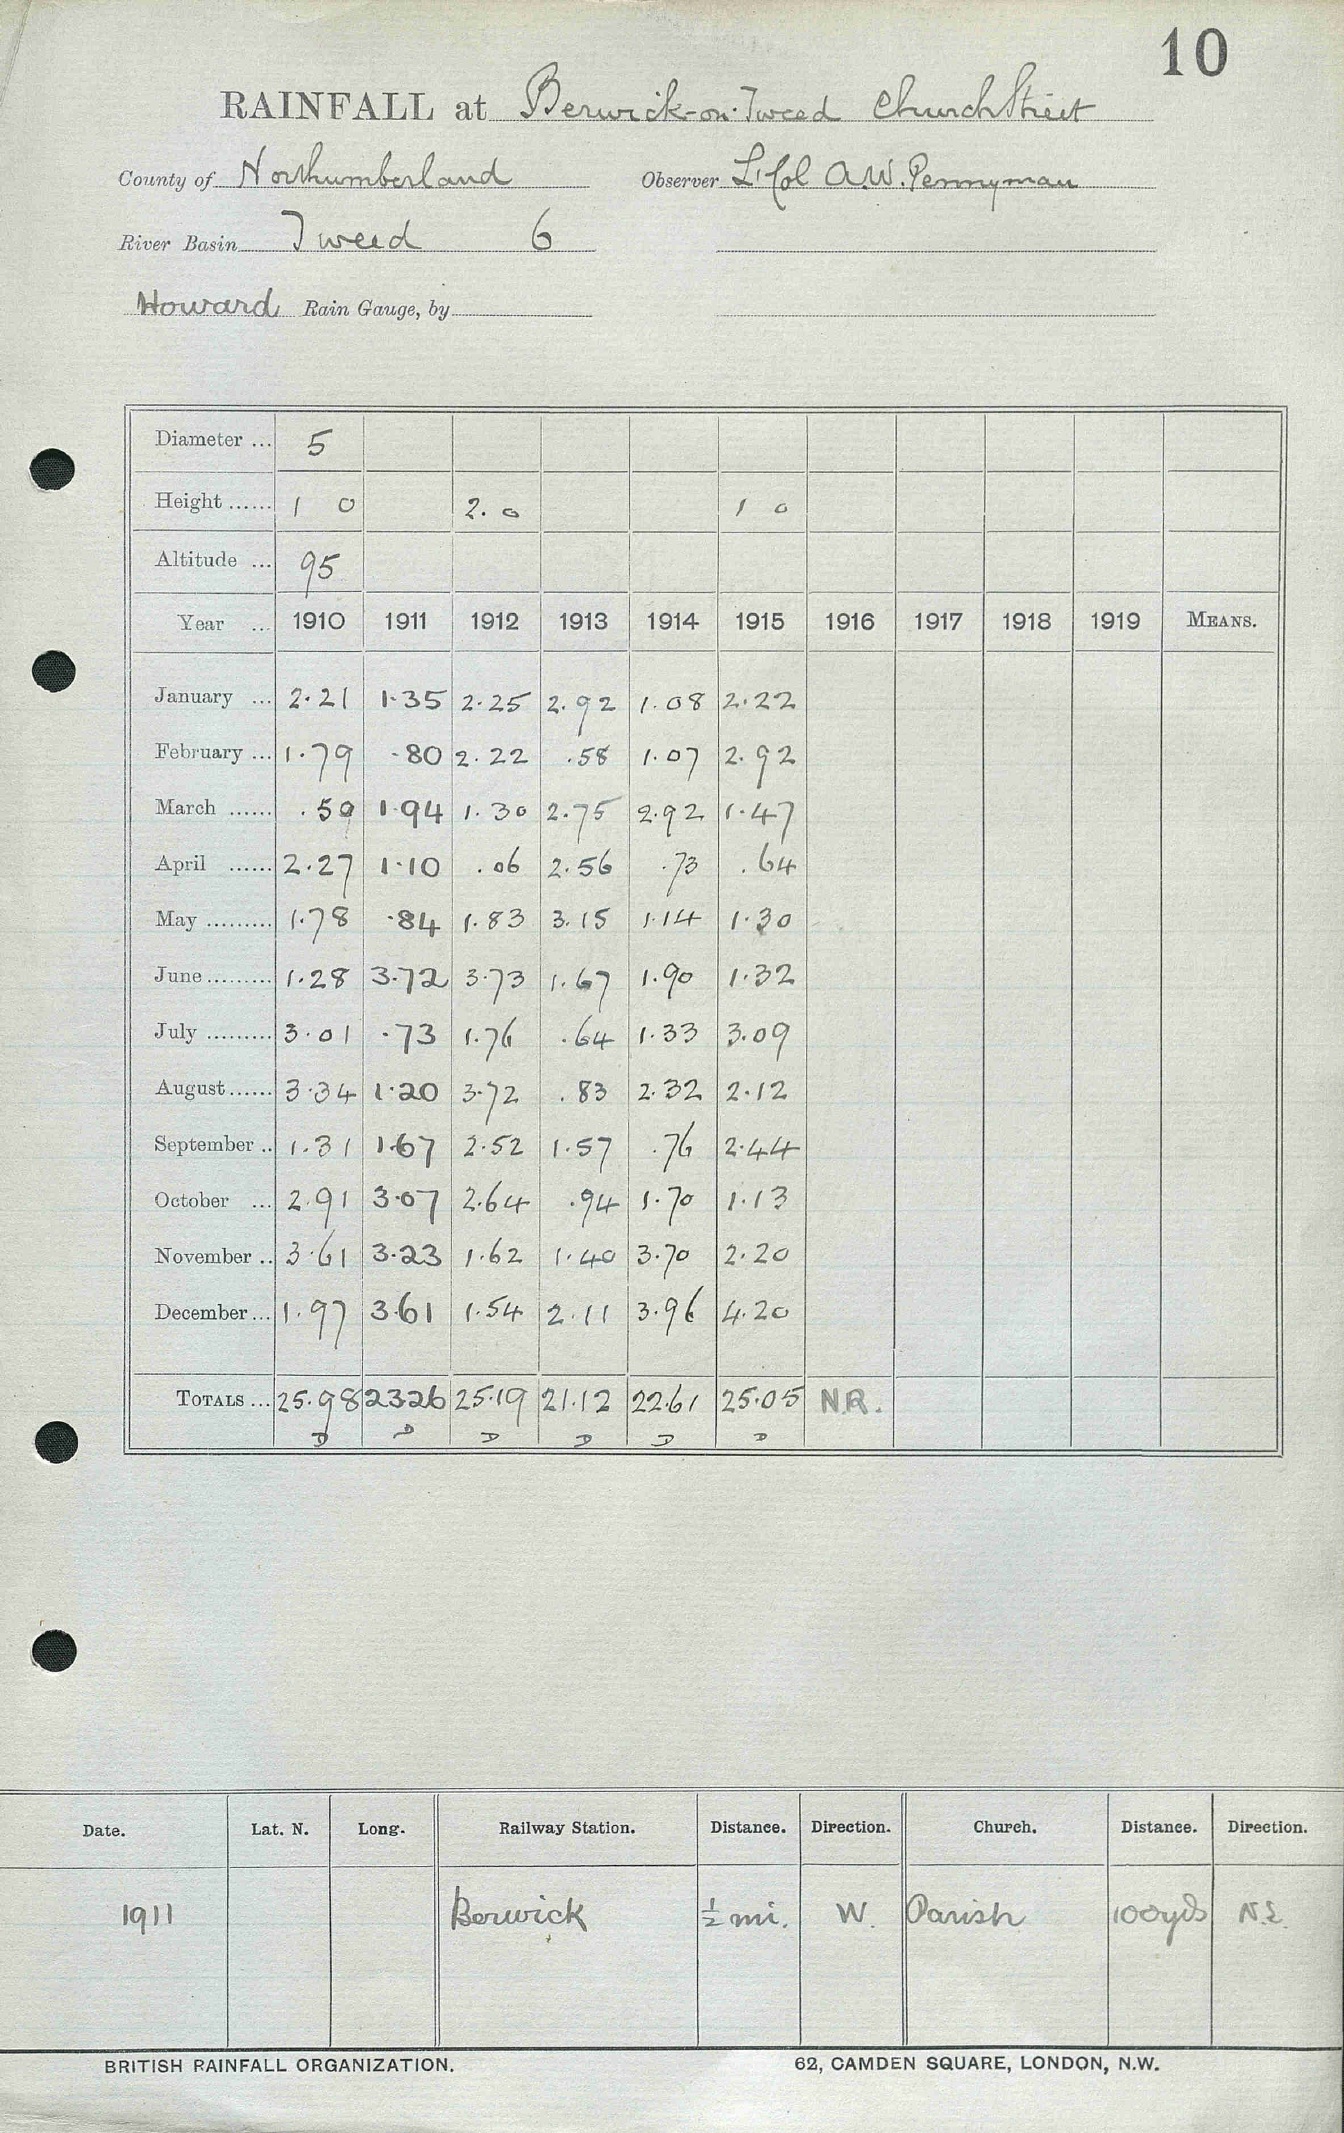 10
RAINFALL at Berwick-on-Tweed Church Street
County of Northumberland Observer Lt Col A.W. Pennyman
River Basin Tweed 6
Howard Rain Gauge, by
Diameter ... 5
Height ...... 1 0 2.0 1 0
Altitude ... 95
Year ... 1910 1911 1912 1913 1914 1915 1916 1917 1918 1919 MEANS.
January ... 2.21 1.35 2.25 2.92 1.08 2.22
February ... 1.79 .80 2.22 .58 1.07 2.92
March ...... .59 1.94 1.30 2.75 2.92 1.47
April ...... 2.27 1.10 .06 2.56 .73 .64
May ......... 1.78 .84 1.83 3.15 1.14 1.30
June ......... 1.28 3.72 3.73 1.67 1.90 1.32
July ......... 3.01 .73 1.76 .64 1.33 3.09
August ...... 3.34 1.20 3.72 .83 2.32 2.12
September .. 1.31 1.67 2.52 1.57 .76 2.44
October ... 2.91 3.07 2.64 .94 1.70 1.13
November .. 3.61 3.23 1.62 1.40 3.70 2.20
December ... 1.97 3.61 1.54 2.11 3.96 4.20
TOTALS ... 25.98 23.26 25.19 21.12 22.61 25.05 N.R.
D D D D D D
Date. Lat. N. Long. Railway Station. Distance. Direction. Church. Distance. Direction.
1911 Berwick ½ mi. W. Parish 100yds N.E.
BRITISH RAINFALL ORGANIZATION. 62, CAMDEN SQUARE, LONDON, N.W.